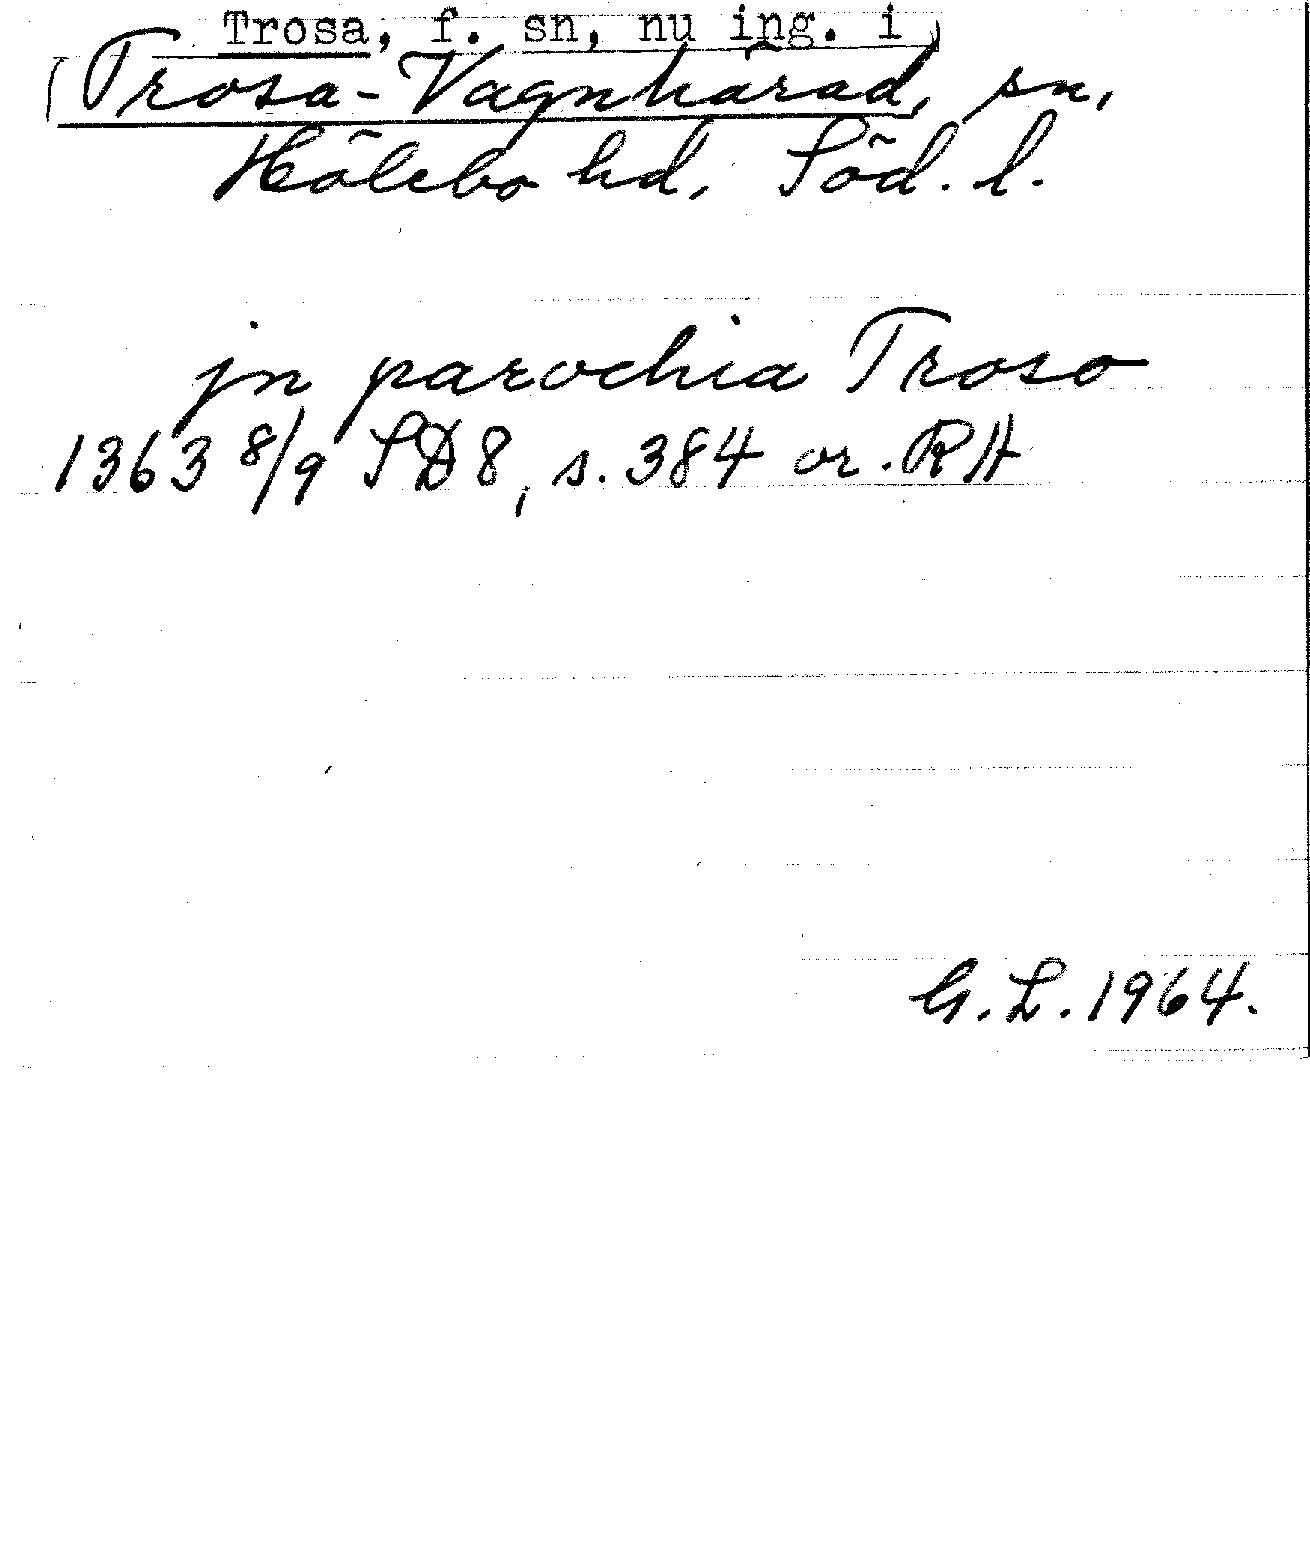 Trosa, f. sn, nu ing. i
(Trosa-Vagnhärad, sn,
Hölebo hd, Söd. l.
jn parochia Troso
1363 8/9 SD 8, s. 384 or. RA
G. L. 1964.